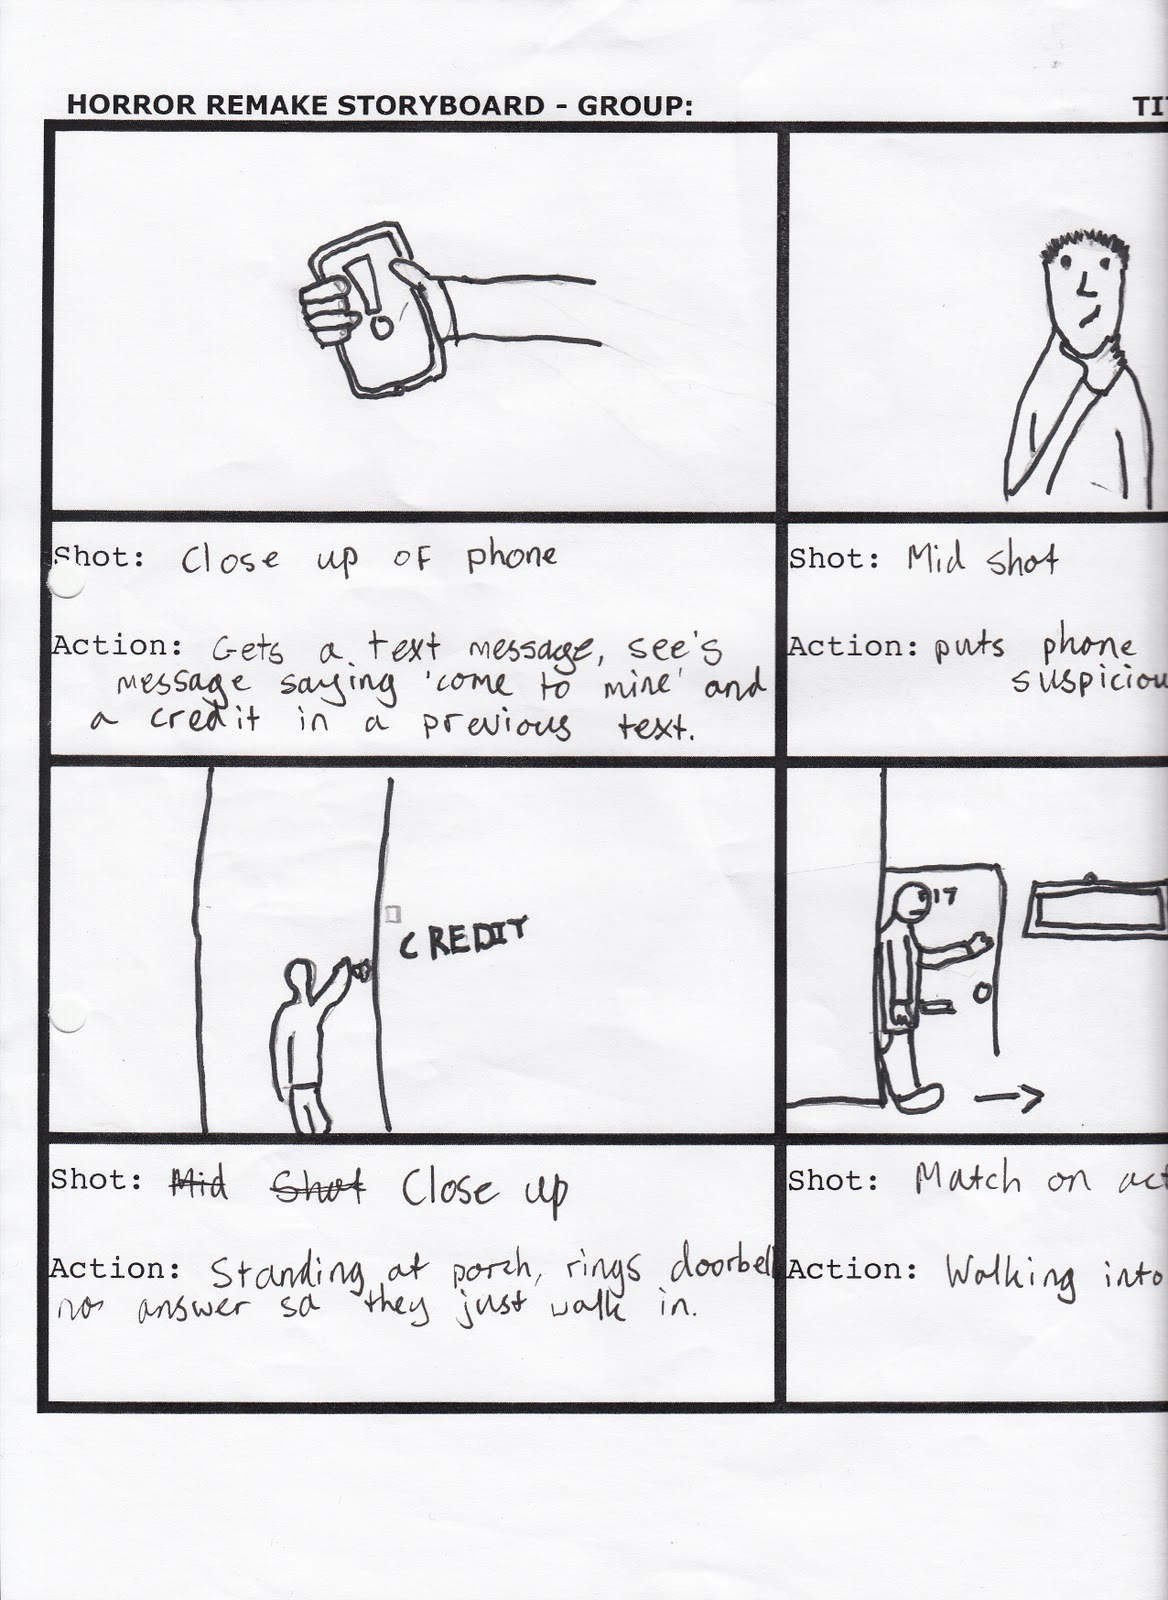 HORROR REMAKE STORYBOARD - GROUP:
Shot: Close up of phone
Action: Gets a text message, see's
message saying 'come to mine' and
a credit in a previous text.
Shot: Mid shot
Action: puts phone
CREDIT
17
Shot: Mid Shot Close up
Action: Standing at porch, rings doorbell
no answer so they just walk in.
Shot: Match on
Action: Walking into